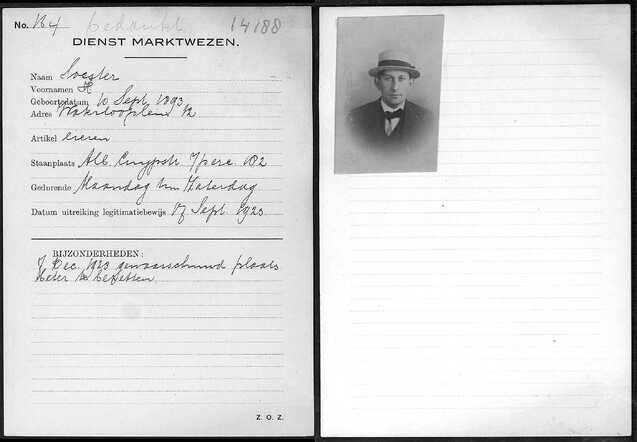 No. 124 bedankt 14188
DIENST MARKTWEZEN.
Naam Soester
Voornamen H
Geboortedatum 10 Sept. 1893
Adres Waterlooplein 12
Artikel eieren
Staanplaats Alb. Cuypstr. perc. 182
Gedurende Maandag t/m Zaterdag
Datum uitreiking legitimatiebewijs 17 Sept. 1923
BIJZONDERHEDEN:
7 Dec. 1923 gewaarschuwd plaats
beter te bezetten
Z. O. Z.